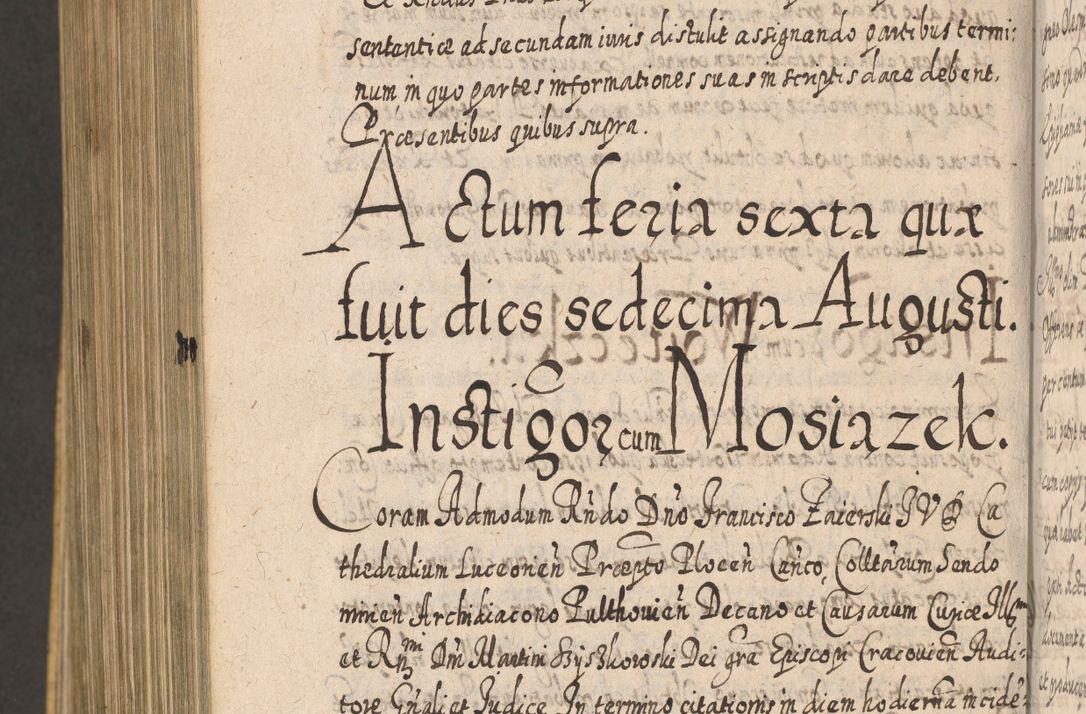 sententiæ ad secundam iuris distulit assignando partibus termi:
num, in quo partes informationes suas in scriptis dare debent.
Præsentibus quibus supra.
Actum feria sexta quæ
fuit dies sedecima Augusti.
Instigor cum Mosiązek.
Coram Admodum Rndo Dno Francisco Zaierski JVD Ca
thedralium Luceorien Præpto Plocen Canco, Colltarum Sendo
mirien Archidiacono Pulthouien Decano et Causarum Curiæ Illmi
et Rmi Dni Martini Szyszkowski Dei gra Episcopi Cracouien Audi:
tore Gnali et Iudice In termino citationis in diem hodiernam incide: